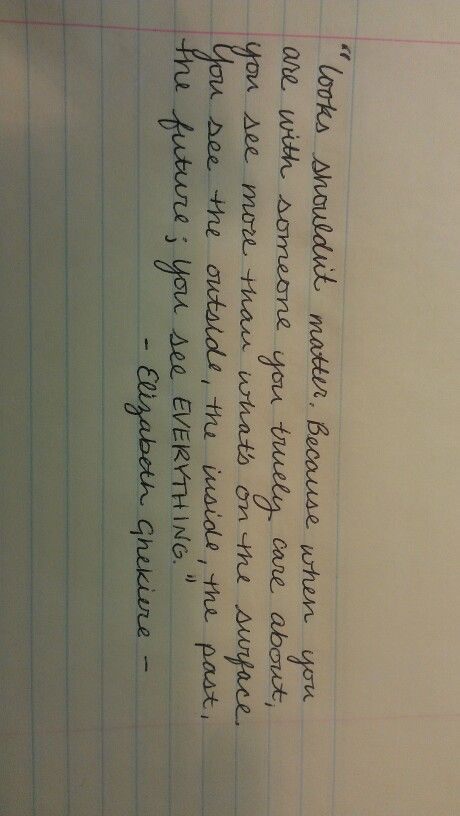 "Looks shouldn't matter. Because when you
are with someone you truely care about,
you see more than what's on the surface.
You see the outside, the inside, the past,
the future; you see EVERYTHING."
- Elizabeth Ghekiere -